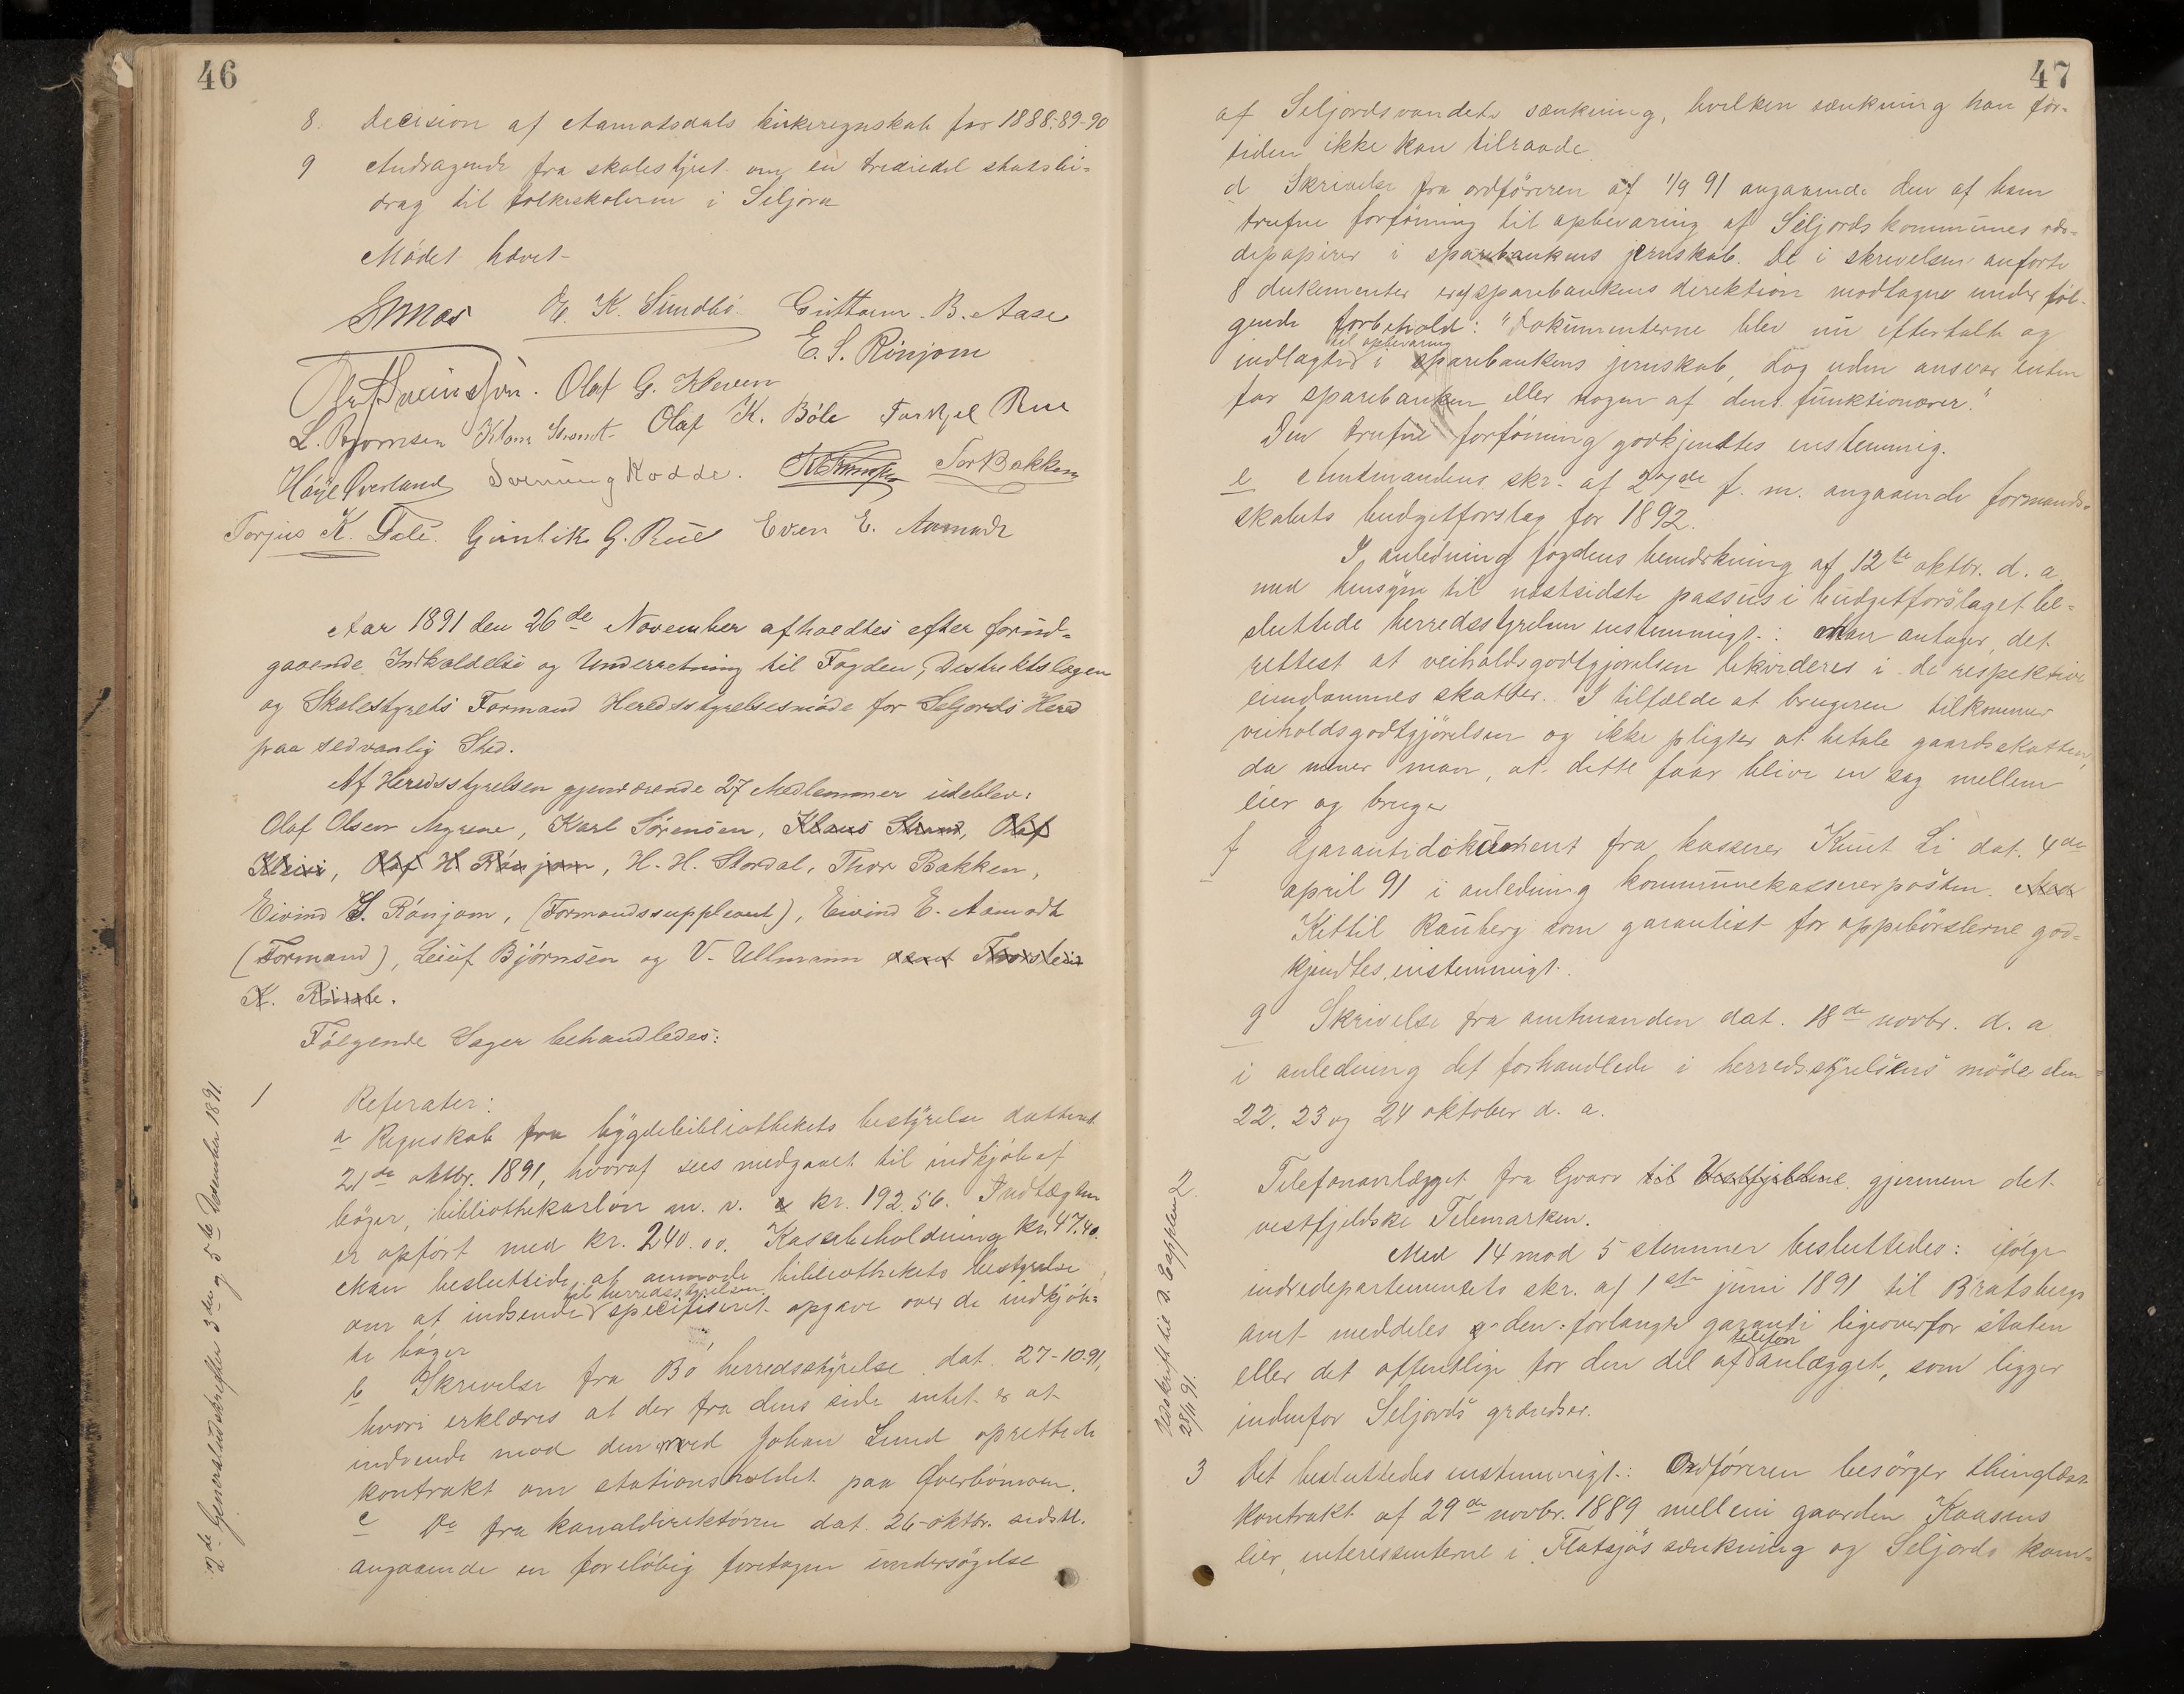 46
8. Decision af Aamotsdals kirkeregnskab for 1888-89-90
9 Andragende fra skolestyret om en trediedel statsbi-
drag til folkeskolerne i Seljord
Mødet hævet-
O. K. Sundbø. Guttorm. B. Aase
E. S. Rønjom
Olaf G. Kleven
L. Bjørnsen Klaus Strand Olaf K. Bøle Torkjel Rue
Høije Overland Svenung Rodde. Tor Bakken
Torjus K. Dale. Guntik G. Rue Even E. Aamodt
Aar 1891 den 26de November afholdtes efter forud-
gaaende Indkaldelse og Underretning til Fogden, Distriktslægen
og Skolestyrets Formand Heredsstyrelsesmøde for Seljords Hered
paa sedvanlig Sted.
Af Heredsstyrelsen gjenværende 27 Medlemmer udeblev:
Olaf Olsen Nyrene, Karl Sørensen, Klaus Strand, Olaf
Kleiva, Olaf H. Rønjom, H. H. Stordal, Thor Bakken,
Eivind S. Rønjom, (Formandssuppleant), Eivind E. Aamodt
(Formand), Leiuf Bjørnsen og V. Ullmann samt Thorstein
K. Rinde.
Følgende Sager behandledes:
1 Referater:
a Regnskab fra bygdebibliothekets bestyrelse dateret
21de oktbr. 1891, hvoraf sees medgaaet til indkjøb af
bøger, bibliothekarløn m. v. kr. 192.56. Indtægten
er opført med kr. 240.00. Kassebeholdning kr. 47.40.
Man besluttede at anmode bibliothekets bestyrelse
til herredsstyrelsen
om at indsende specifiseret opgave over de indkjøb-
te bøger
b Skrivelse fra Bø herredsstyrelse dat. 27-10-91,
hvori erklæres at der fra dens side intet er at
indvende mod den med Johan Lund oprettede
kontrakt om stationsholdet paa Øverbømoen.
c Do fra kanaldirektøren dat. 26-oktbr. sidstl.
angaaende en foreløbig foretagen undersøgelse
2de Generaludskrifter 3die og 5te Desember 1891.
47
af Seljordsvandets sænkning, hvilken sænkning han for-
tiden ikke kan tilraade.
d Skrivelse fra ordføreren af 1/9 91 angaaende den af ham
trufne forføining til opbevaring af Seljords kommunes vær-
depapirer i sparebankens jernskab. De i skrivelsen anførte
8 dokumenter er af sparebankens direktion modtagne under føl-
gende forbehold: "Dokumenterne blev nu eftertalt og
til opbevaring
indlagte i sparebankens jernskab, dog uden ansvar enten
for sparebanken eller nogen af dens funktionærer."
Den trufne forføining godkjendtes enstemmig.
e Amtmandens skr. af 27de f. m. angaaende formands-
skabets budgetforslag for 1892.
I anledning fogdens bemærkning af 12te oktbr. d. a.
med hensyn til næstsidste passus i budgetforslaget be-
sluttede herredsstyrelsen enstemmigt: Man antager, det
rettest at veiholdsgodtgjørelsen likvideres i de respektive
eiendommes skatter. I tilfælde at brugeren tilkommer
veiholdsgodtgjørelsen og ikke pligter at betale gaardsskatten,
da mener man, at dette faar blive en sag mellem
eier og bruger
f Garantidokument fra kasserer Knut Li dat. 4de
april 91 i anledning kommunekassererposten.
Kittil Rauberg som garantist for oppebørslerne god-
kjendtes enstemmigt.
g Skrivelse fra amtmanden dat. 18de novbr. d. a.
i anledning det forhandlede i herredsstyrelsens møde den
22, 23 og 24 oktober d. a.
2 Telefonanlægget fra Gvarv til Vestfjeldene gjennem det
vestfjeldske Telemarken.
Med 14 mod 5 stemmer besluttedes: ifølge
indredepartementets skr. af 1ste juni 1891 til Bratsbergs
amt meddeles den forlangte garanti ligeoverfor staten
telefon
eller det offentlige for den del af anlægget, som ligger
indenfor Seljords grændser.
Udskrift til
28/11 91.
3 Det besluttedes enstemmigt: Ordføreren besørger thinglæst
kontrakt af 29de novbr. 1889 mellem gaarden Kaasens
eier, interessenterne i Flatsjøs sænkning og Seljords kom-